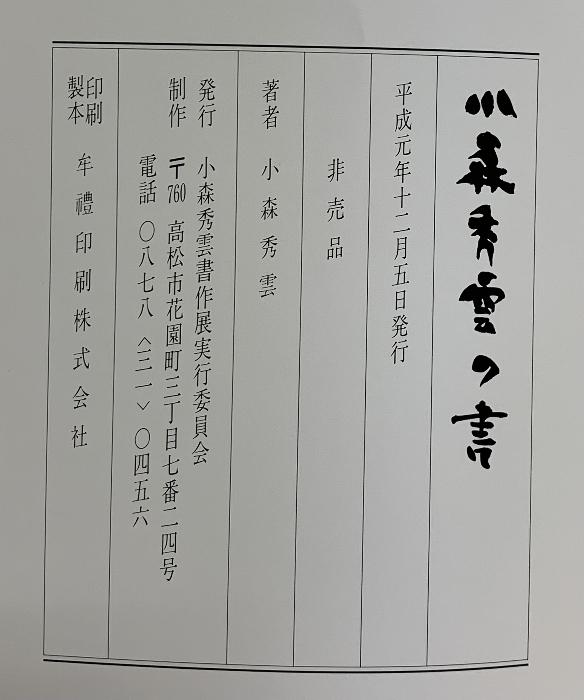 小森秀雲の書
平成元年十二月五日発行
非売品
著者 小森秀雲
発行 小森秀雲書作展実行委員会
制作 〒760 高松市花園町三丁目七番二四号
電話 〇八七八〈三一〉〇四五六
印刷
製本 牟禮印刷株式会社